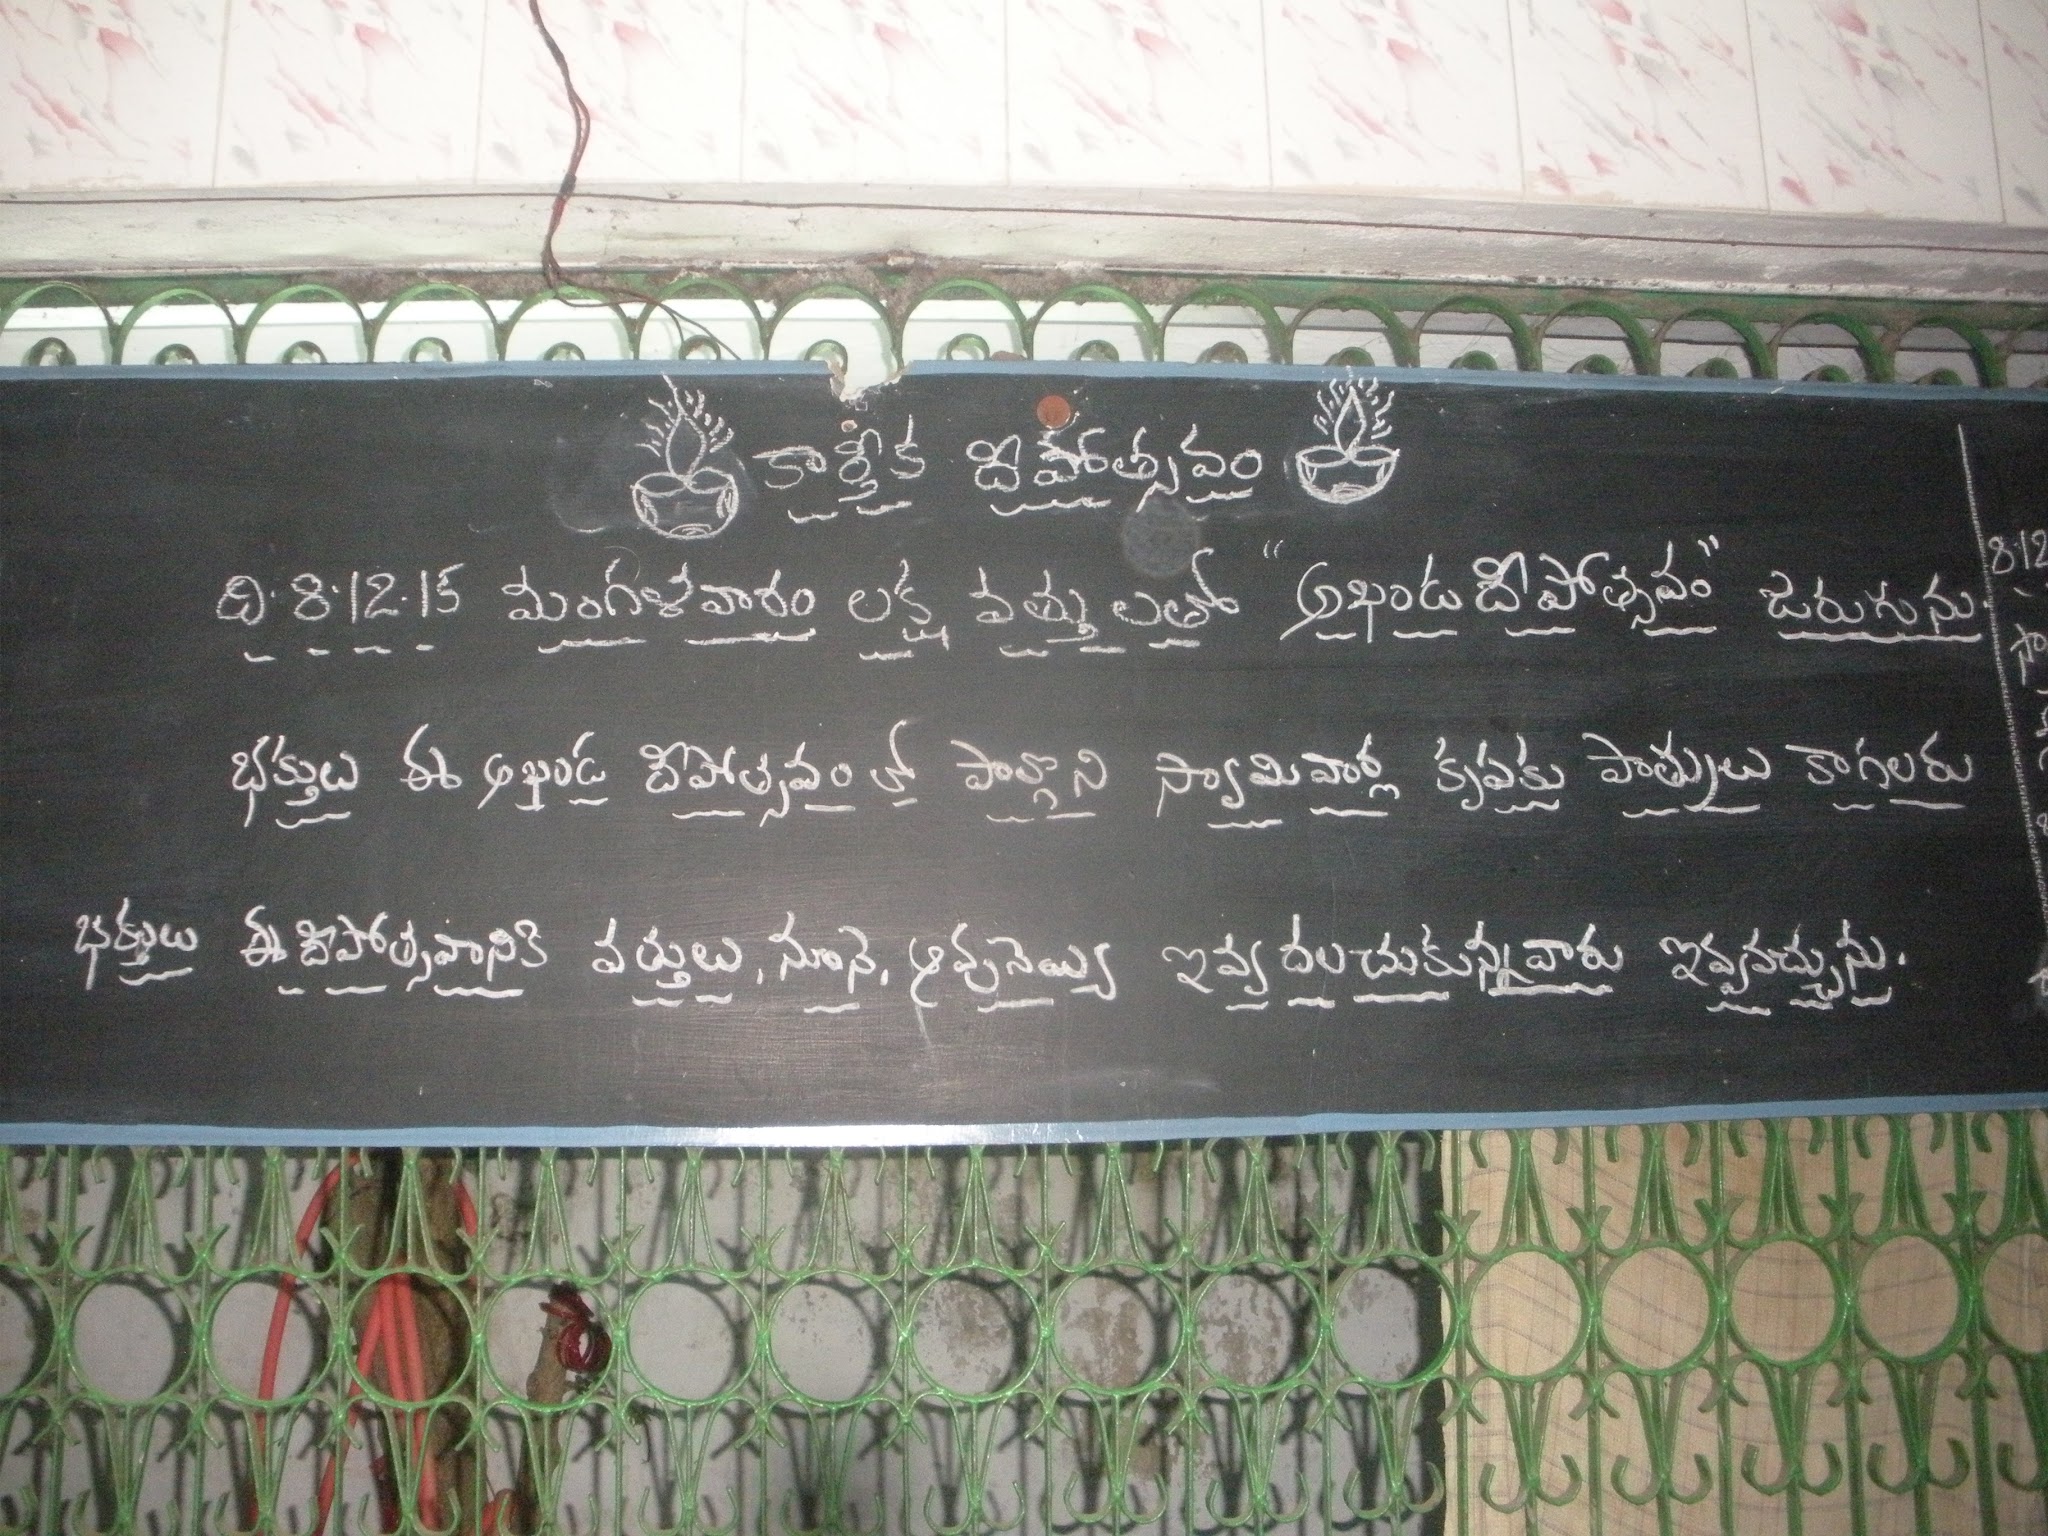 కార్తీక దీపోత్సవం
ది. 8.12.15 మంగళవారం లక్ష వత్తులతో "అఖండ దీపోత్సవం" జరుగును.
భక్తులు ఈ అఖండ దీపోత్సవం లో పాల్గొని స్వామివార్ల కృపకు పాత్రులు కాగలరు
భక్తులు ఈ దీపోత్సవానికి వత్తులు, నూనె, ఆవునెయ్యి ఇవ్వ దలచుకున్నవారు ఇవ్వవచ్చును.
8.12